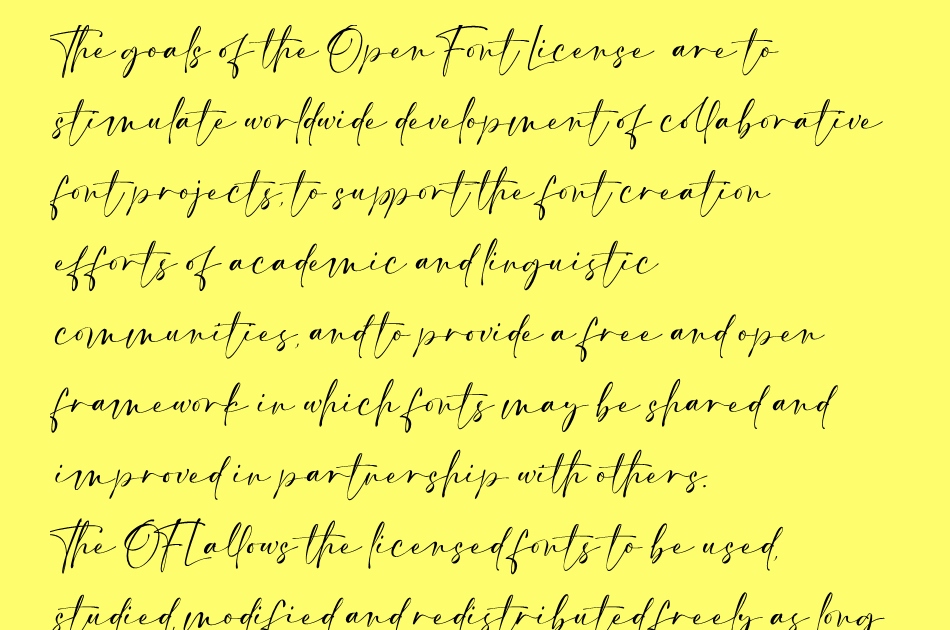 The goals of the Open Font License are to
stimulate worldwide development of collaborative
font projects, to support the font creation
efforts of academic and linguistic
communities, and to provide a free and open
framework in which fonts may be shared and
improved in partnership with others.
The OFL allows the licensed fonts to be used,
studied, modified and redistributed freely as long